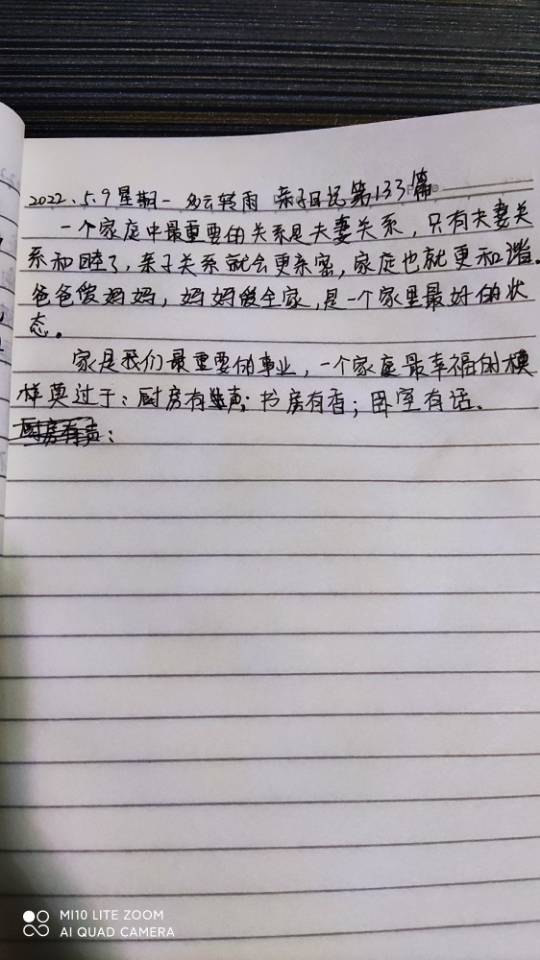 2022.5.9星期一 多云转雨 亲子日记第133篇
一个家庭中最重要的关系是夫妻关系，只有夫妻关
系和睦了，亲子关系就会更亲密，家庭也就更和谐。
爸爸爱妈妈，妈妈爱全家，是一个家里最好的状
态。
家是我们最重要的事业，一个家庭最幸福的模
样莫过于：厨房有声；书房有香；卧室有话.
厨房有声：
MI 10 LITE ZOOM
AI QUAD CAMERA